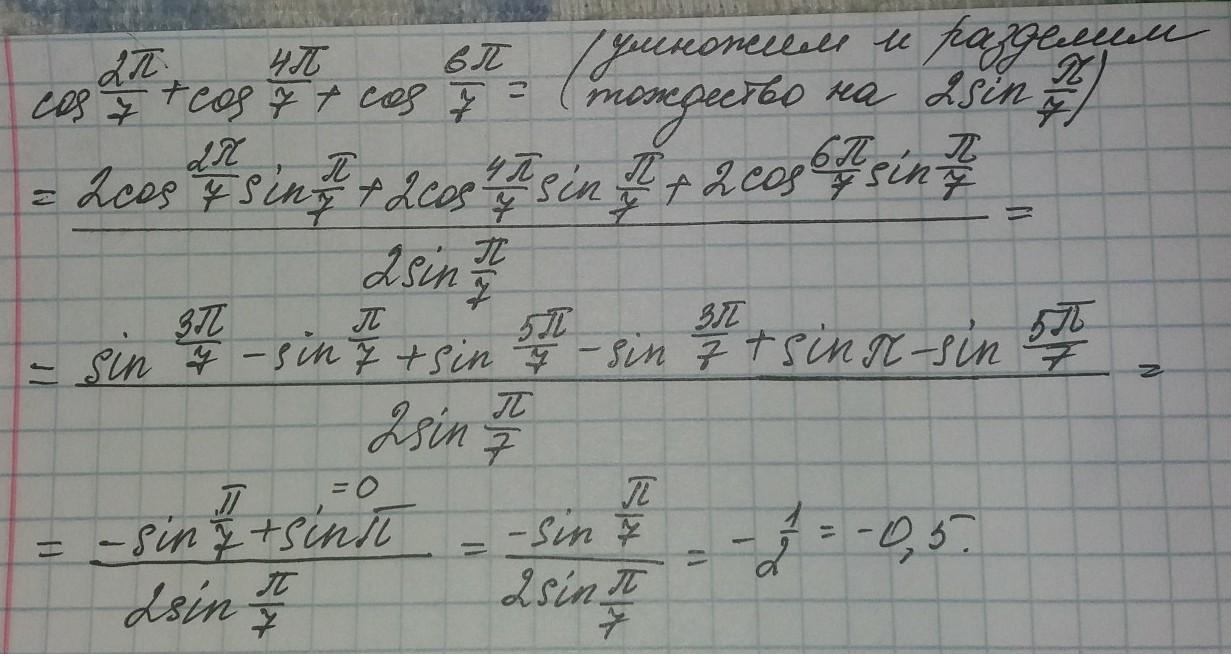 cos 2π/7 + cos 4π/7 + cos 6π/7 = (умножим и разделим тождество на 2sin π/7)
= (2cos 2π/7 sin π/7 + 2cos 4π/7 sin π/7 + 2cos 6π/7 sin π/7) / (2sin π/7) =
= (sin 3π/7 - sin π/7 + sin 5π/7 - sin 3π/7 + sin π - sin 5π/7) / (2sin π/7) =
= (-sin π/7 + sin π =0) / (2sin π/7) = (-sin π/7) / (2sin π/7) = - 1/2 = -0,5.